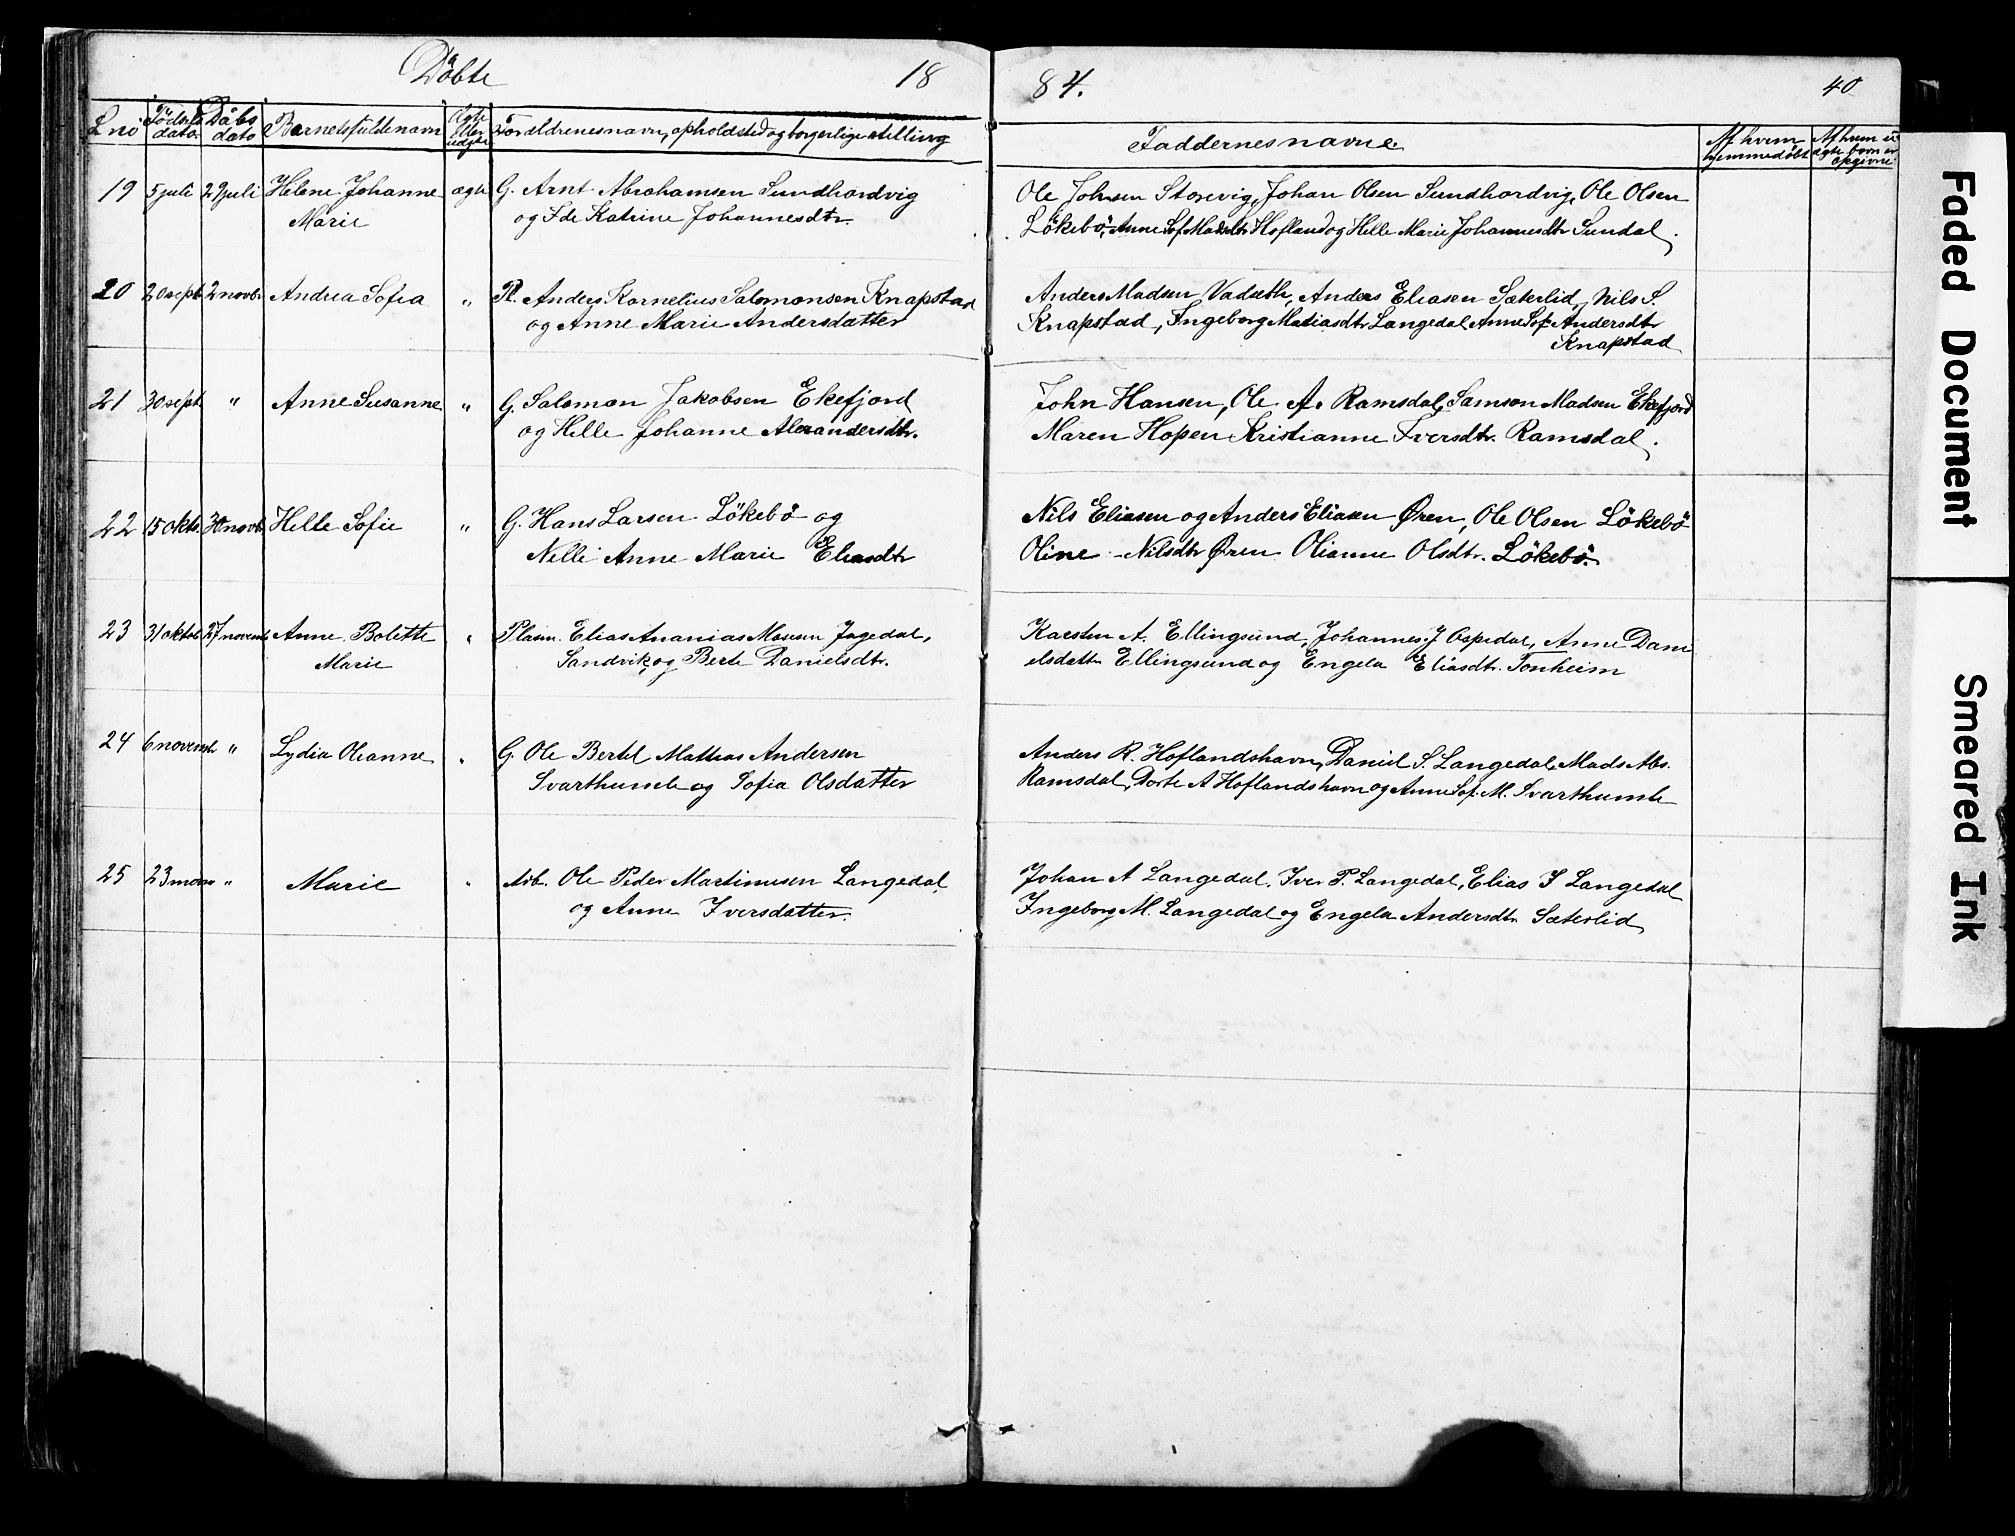 Döbte 18 84. 40
L no Födsels dato Döbs dato Barnets fulde navn Ægte eller uægte Forældrenes navn, opholdsted og borgerlige stilling Faddernes navne. Af hvem hjemmedöbt
19 5 juli 29 juli Helene Johanne ægte G. Arnt Abrahamsen Sundhordvig Ole Johnsen Storevig, Johan Olsen Sundhordvig, Ole Olsen
Marie og Ide Katrine Johannesdtr. Lökebö, Anne Sof. Madsdtr Hofland og Helle Marie Johannesdtr Sundal.
20 20 sept 2 novbr Andrea Sofia " Pl. Anders Kornelius Salomonsen Knapstad Anders Madsen Vadseth, Anders Eliasen Sæterlid, Nils S.
og Anne Marie Andersdatter Knapstad, Ingeborg Matiasdtr Langedal Anne Sof. Andersdtr
Knapstad
21 30 sept " Anne Susanne " G. Salomon Jakobsen Ekefjord John Hansen, Ole A. Ramsdal, Samson Madsen Ekefjord
og Helle Johanne Alexandersdtr. Maren Hopen Kristianne Iversdtr. Ramsdal.
22 15 okt. 30 novb Helle Sofie " G. Hans Larsen Lökebö og Nils Eliasen og Anders Eliasen Øren, Ole Olsen Lökebö
Nelli Anne Marie Eliasdtr Oline Nilsdtr Øren Olianne Olsdtr. Lökebö.
23 31 oktob 27 novemb Anne Bolette " Plasm. Elias Ananias Mosesen Jagedal, Karsten A. Ellingsund, Johannes J Ospedal, Anne Dani
Marie Sandvik og Berte Danielsdtr. elsdattr Ellingsund og Engela Eliasdtr. Tonheim
24 6 novemb " Lydia Oleanne " G. Ole Bertel Mathias Andersen Anders R. Hoflandshavn, Daniel S. Langedal, Mads Abs.
Svarthumle og Sofia Olsdatter Ramsdal, Dorte A Hoflandshavn og Anne Sof. M. Svarthumle
25 23 " Marie " Arb. Ole Peder Martinusen Langedal Johan A Langedal, Iver P. Langedal, Elias I Langedal
og Anne Iversdatter. Ingeborg M. Langedal og Engela Andersdtr Sæterlid
Faded Document
Smeared Ink